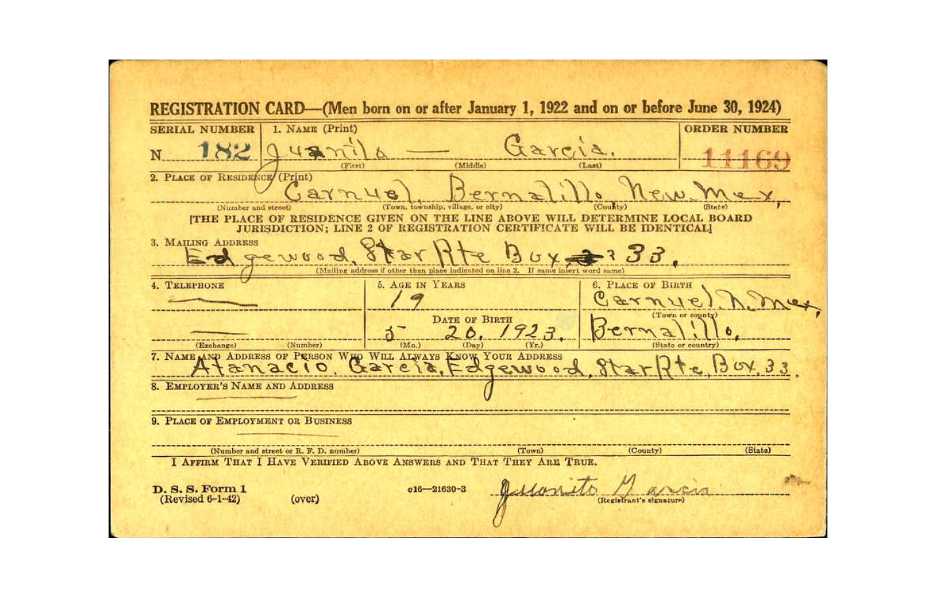 REGISTRATION CARD—(Men born on or after January 1, 1922 and on or before June 30, 1924)
SERIAL NUMBER 1. NAME (Print) ORDER NUMBER
N 182 Juanito — Garcia. 11169
(First) (Middle) (Last)
2. PLACE OF RESIDENCE (Print)
Carnuel, Bernalillo, New Mex,
(Number and street) (Town, township, village, or city) (County) (State)
[THE PLACE OF RESIDENCE GIVEN ON THE LINE ABOVE WILL DETERMINE LOCAL BOARD
JURISDICTION; LINE 2 OF REGISTRATION CERTIFICATE WILL BE IDENTICAL]
3. MAILING ADDRESS
Edgewood, Star Rte Box 33.
(Mailing address if other than place indicated on line 2. If same insert word same)
4. TELEPHONE 5. AGE IN YEARS 6. PLACE OF BIRTH
— 19 Carnuel, N. Mex,
(Town or county)
DATE OF BIRTH
— 5 20, 1923. Bernalillo,
(Exchange) (Number) (Mo.) (Day) (Yr.) (State or country)
7. NAME AND ADDRESS OF PERSON WHO WILL ALWAYS KNOW YOUR ADDRESS
Atanacio Garcia, Edgewood, Star Rte, Box, 33.
8. EMPLOYER'S NAME AND ADDRESS
9. PLACE OF EMPLOYMENT OR BUSINESS
(Number and street or R. F. D. number) (Town) (County) (State)
I AFFIRM THAT I HAVE VERIFIED ABOVE ANSWERS AND THAT THEY ARE TRUE.
D. S. S. Form 1 c16—21630-3 Juanito Garcia
(Revised 6-1-42) (over) (Registrant's signature)